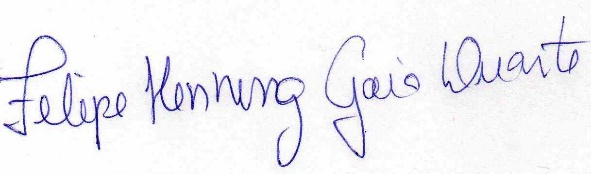 Felipe Henning Gaio Duarte